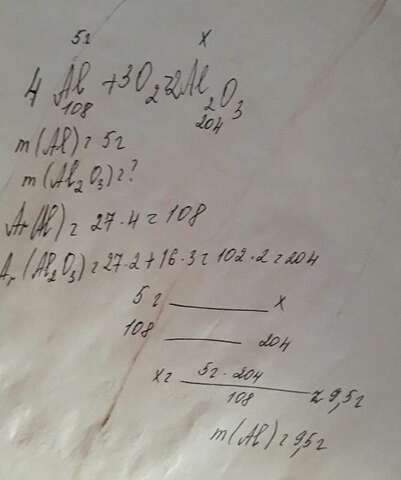 5г x
4 Al + 3O₂ = 2Al₂O₃
108 204
m(Al) = 5г
m(Al₂O₃) = ?
Ar(Al) = 27·4 = 108
Ar(Al₂O₃) = 27·2 + 16·3 = 102·2 = 204
5г —— x
108 —— 204
x = 5г · 204 / 108 = 9,5г
m(Al) = 9,5г